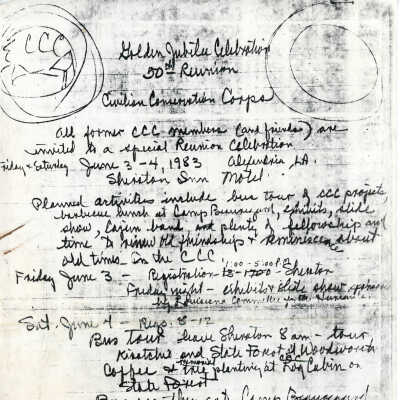 CCC
Golden Jubilee Celebration
50th Reunion
Civilian Conservation Corps
All former CCC members (and friends) are
invited to a special Reunion Celebration
Friday & Saturday June 3-4, 1983 Alexandria LA.
Sheraton Inn Motel.
Planned activities include bus tour of CCC projects,
barbecue lunch at Camp Beauregard, exhibits, slide
show, Cajun band, and plenty of fellowship and
time to renew old friendships & reminisce about
old times in the CCC.
1:00-5:00 P.M.
Friday June 3 - Registration Sheraton
Friday night - exhibit & slide show sponsored
by Louisiana Committee
Sat. June 4 - Regis. 8-12
Bus Tour leave Sheraton 8 am - tour
Kisatchie and State Forest Woodworth
Coffee & tree planting at Log Cabin on
State Forest
Camp Beauregard